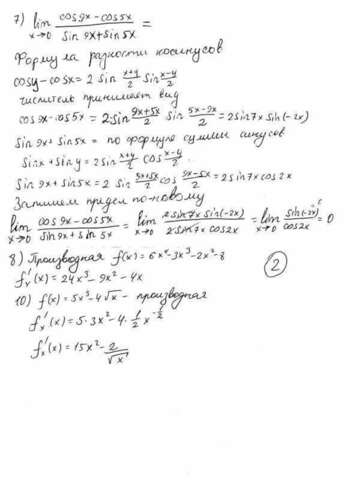 7) lim x→0 (cos9x - cos5x)/(sin9x + sin5x) =
Формула разности косинусов
cosy - cosx = 2 sin (x+y)/2 sin (x-y)/2
числитель принимает вид
cos9x - cos5x = 2·sin (9x+5x)/2 sin (5x-9x)/2 = 2sin7x sin(-2x)
sin9x + sin5x = по формуле суммы синусов
sinx + siny = 2sin (x+y)/2 cos (x-y)/2
sin9x + sin5x = 2 sin (9x+5x)/2 cos (9x-5x)/2 = 2sin7x cos2x
Запишем предел по-новому
lim x→0 (cos9x - cos5x)/(sin9x + sin5x) = lim x→0 (2sin7x sin(-2x))/(2sin7x cos2x) = lim x→0 sin(-2x)/cos2x = 0
8) Производная f(x) = 6x⁴-3x³-2x²-8
f'ₓ(x) = 24x³ - 9x² - 4x
②
10) f(x) = 5x³ - 4√x - производная
f'ₓ(x) = 5·3x² - 4·½ x^(-½)
f'ₓ(x) = 15x² - 2/√x